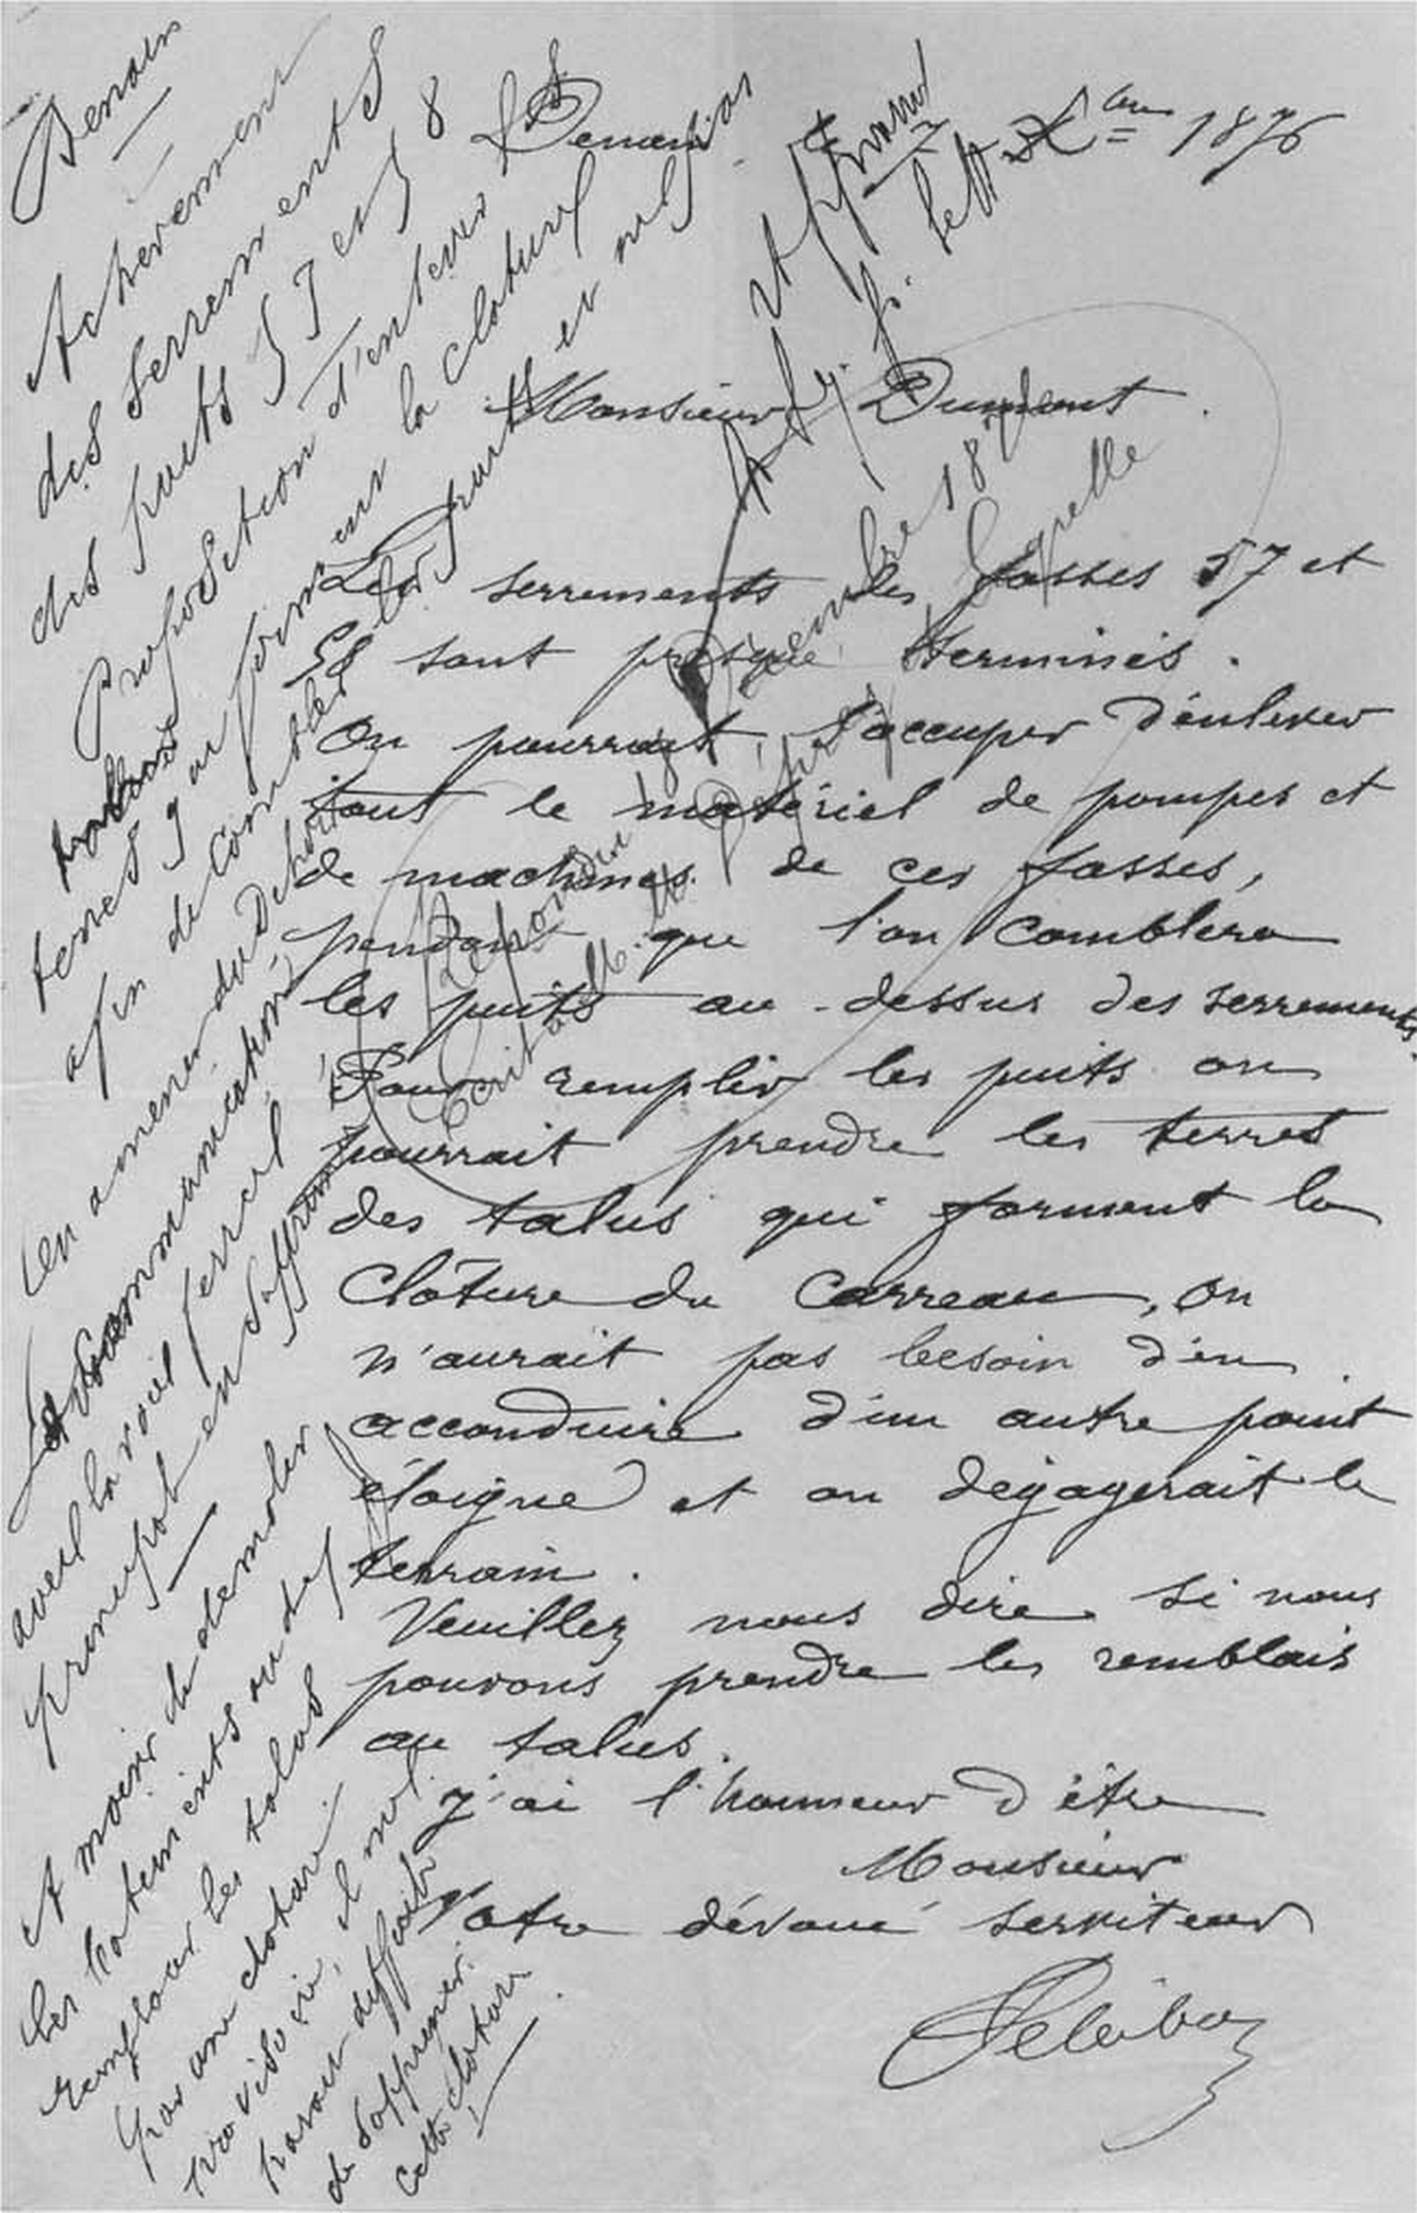 Denain
Xbre 1876
Monsieur Dumont
Les serrements des fosses 57 et
58 sont presque terminés.
On pourrait s'occuper d'enlever
tout le matériel de pompes et
de machines de ces fosses,
pendant que l'on comblera
les puits au-dessus des serrements.
Pour remplir les puits on
pourrait prendre les terres
des talus qui forment la
Clôture du Carreau, on
n'aurait pas besoin d'en
acconduire d'un autre point
éloigné et on dégagerait le
terrain.
Veuillez nous dire si nous
pouvons prendre les remblais
au talus.
J'ai l'honneur d'être
Monsieur
Votre dévoué serviteur
Denain
Achevement
des serrements
des puits 57 et 58
Proposition d'enlever les
terres qui forment la cloture
afin de combler les puits et
en amener du dehors
communication
avec la voie ferrée
principal en
A moins de demolir
les batiments ou de
remplacer les talus
par une cloture
provisoire, il me
parait difficile
de supprimer
cette cloture
Répondu le Décembre 187
Ecrit à M. Capelle